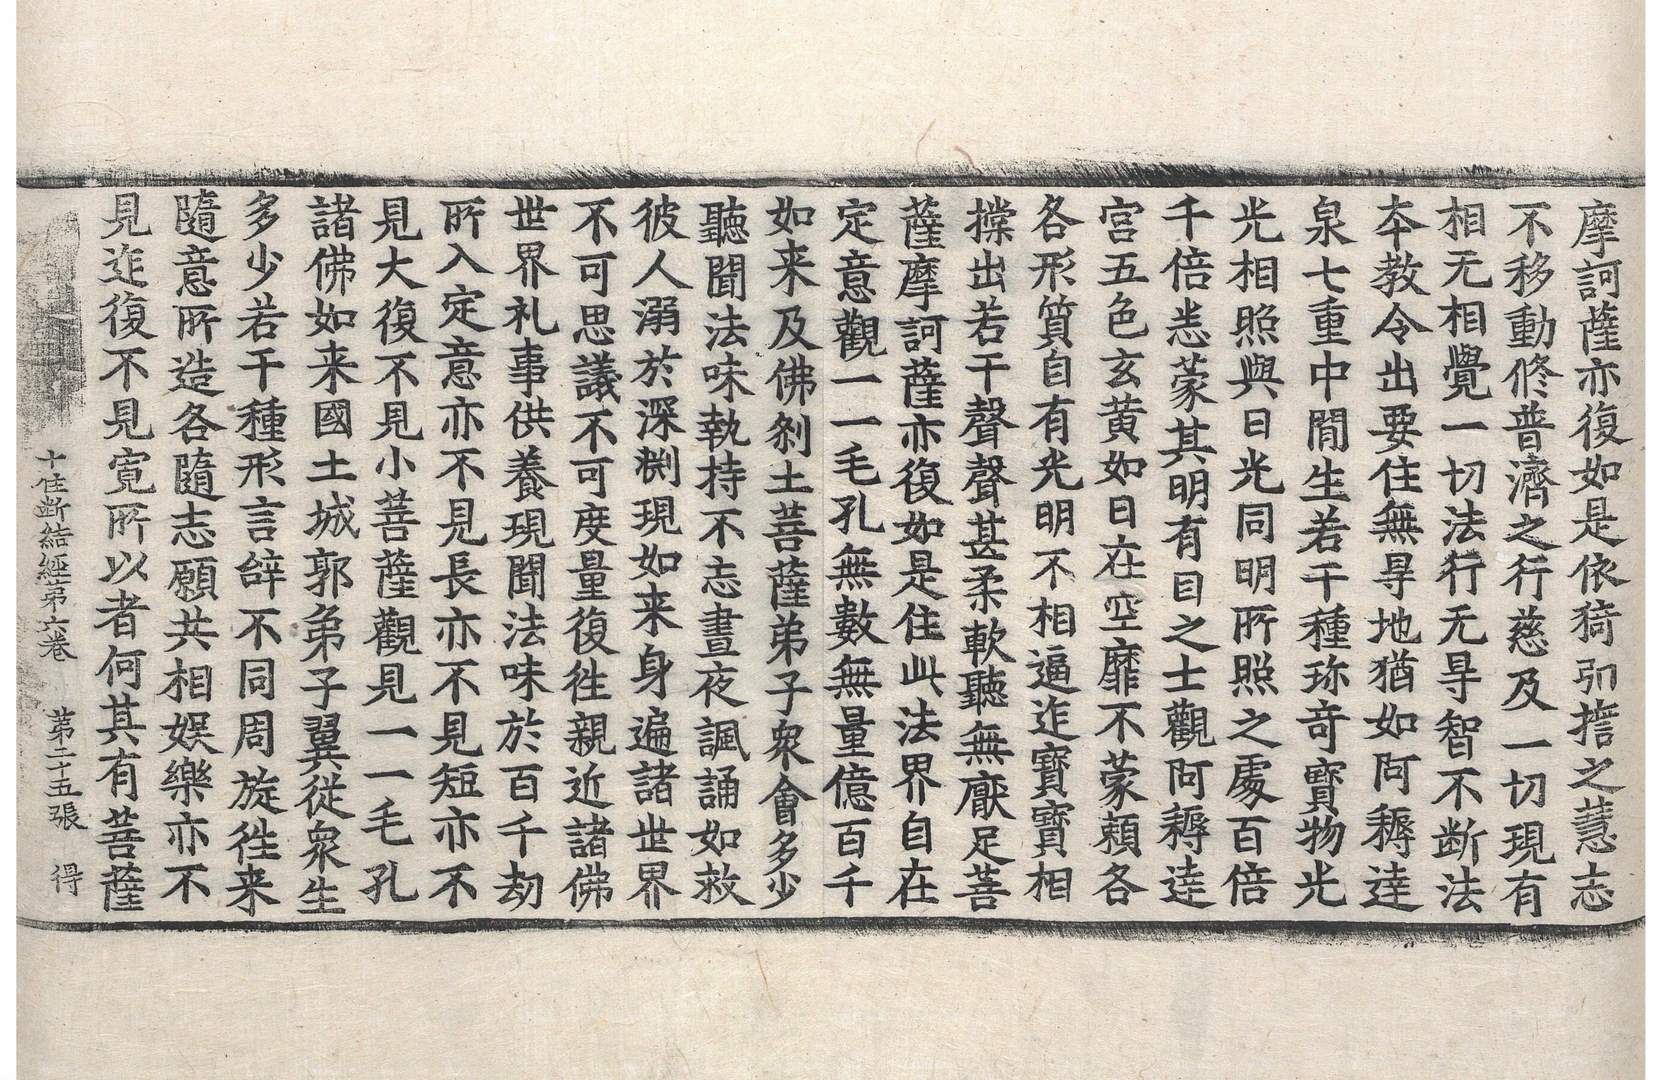 摩訶薩亦復如是依猗卬捨之慧志
不移動修普濟之行慈及一切現有
相无相覺一切法行无㝵智不断法
夲教令出要住無㝵地猶如阿耨達
泉七重中閒生若干種珎竒寳物光
光相照與日光同明所照之處百倍
千倍恙蒙其明有目之士觀阿耨達
宫五色玄黄如日在空靡不蒙頼各
各形質自有光明不相逼迮寳寳相
摚出若干聲聲甚柔軟聽無厭足菩
薩摩訶薩亦復如是住此法界自在
定意觀一一毛孔無數無量億百千
如来及佛刹土菩薩弟子衆會多少
聽聞法味執持不忘晝夜諷誦如救
彼人溺於深渕現如来身遍諸世界
不可思議不可度量復徃親近諸佛
世界礼事供養現聞法味於百千劫
所入定意亦不見長亦不見短亦不
見大復不見小菩薩觀見一一毛孔
諸佛如来國土城郭弟子翼從衆生
多少若干種形言辝不同周旋徃来
隨意所造各隨志願共相娱樂亦不
見迮復不見寛所以者何其有菩薩
十住断結經第六巻 第二十五張 得